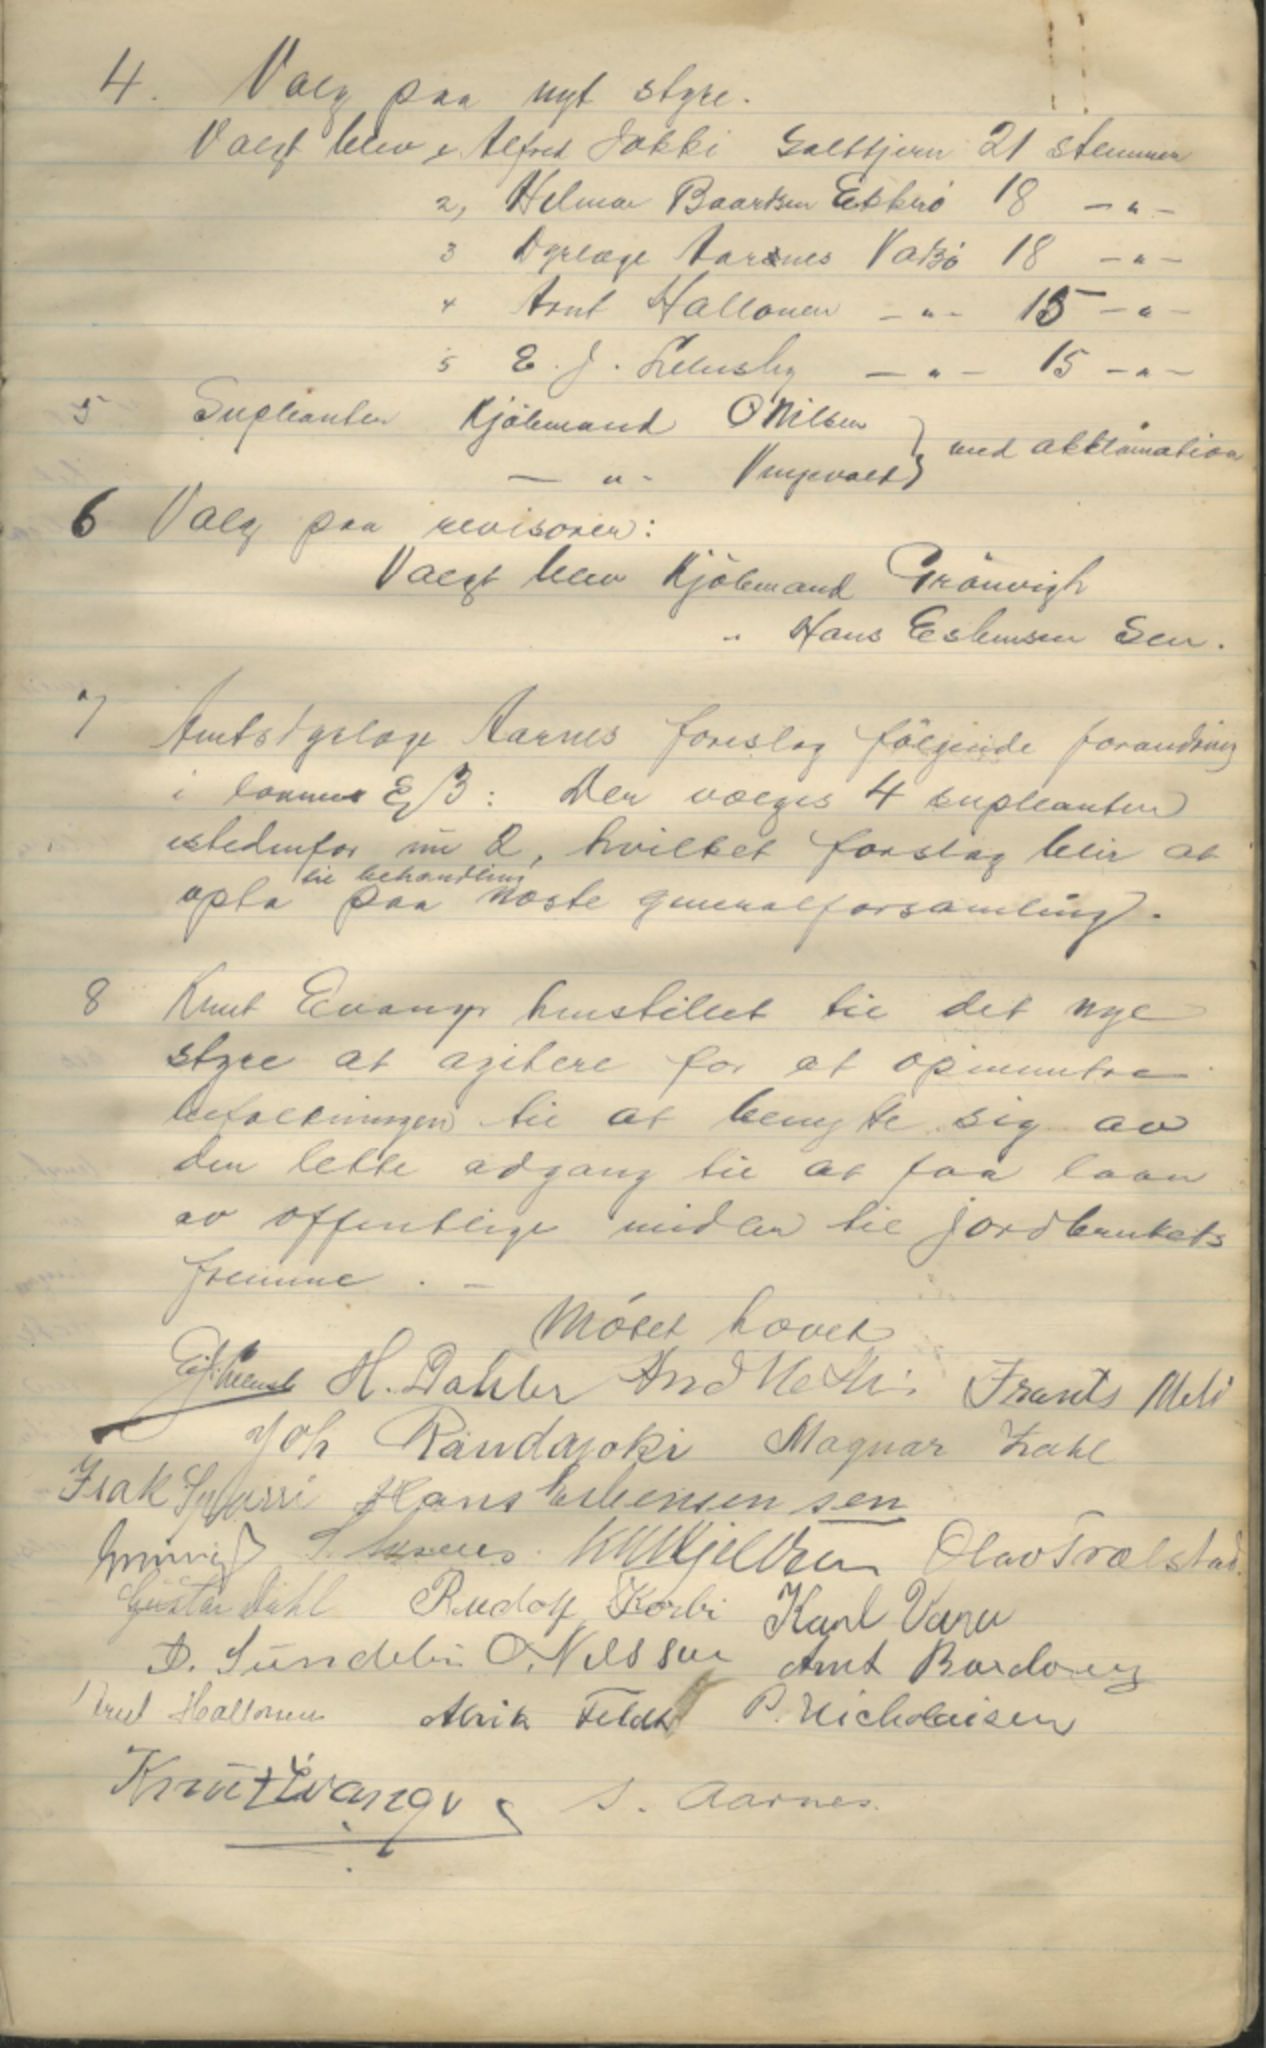 4. Valg paa nyt styre.
Valgt blev 1, Alfred Jokki Golttjern 21 stemmer
2, Hilmar Baardsen Ekkerø 18 — " —
3 Dyrlæge Aarsnes Vadsø 18 — " —
4 Arnt Hallonen — " — 15 — " —
5 E. J. — " — 15 — " —
5 Supleanter Kjøbmand O Nilsen } med akklamation
— " -
6 Valg paa revisorer:
Valgt blev Kjøbmand Grönvigh
" Hans Esbensen Sen.
7 Amtsdyrlæge Aarnes foreslog følgende forandring
i lovenes § 3: Der vælges 4 supleanter
istedenfor nu 2, hvilket forslag blir at
opta til behandling paa næste generalforsamling.
8 Knut Evanger henstillet til det nye
styre at agitere for at opmuntre
befolkningen til at benytte sig av
den lette adgang til at faa laan
av offentlige midler til jordbrukets
fremme. —
Møtet hævet
H. Dahler And Frants
Joh Randajoki Magnar Zahl
Isak Hans Esbensen sen
Olav Trælstad.
Gustav Dahl Rudolf Korbi Karl Vara
D. Sundelin O. Nilssen Arnt
Arnt Hallonen Alrik Feldt P. Nicholaisen
Knut Evanger S. Aarnes.